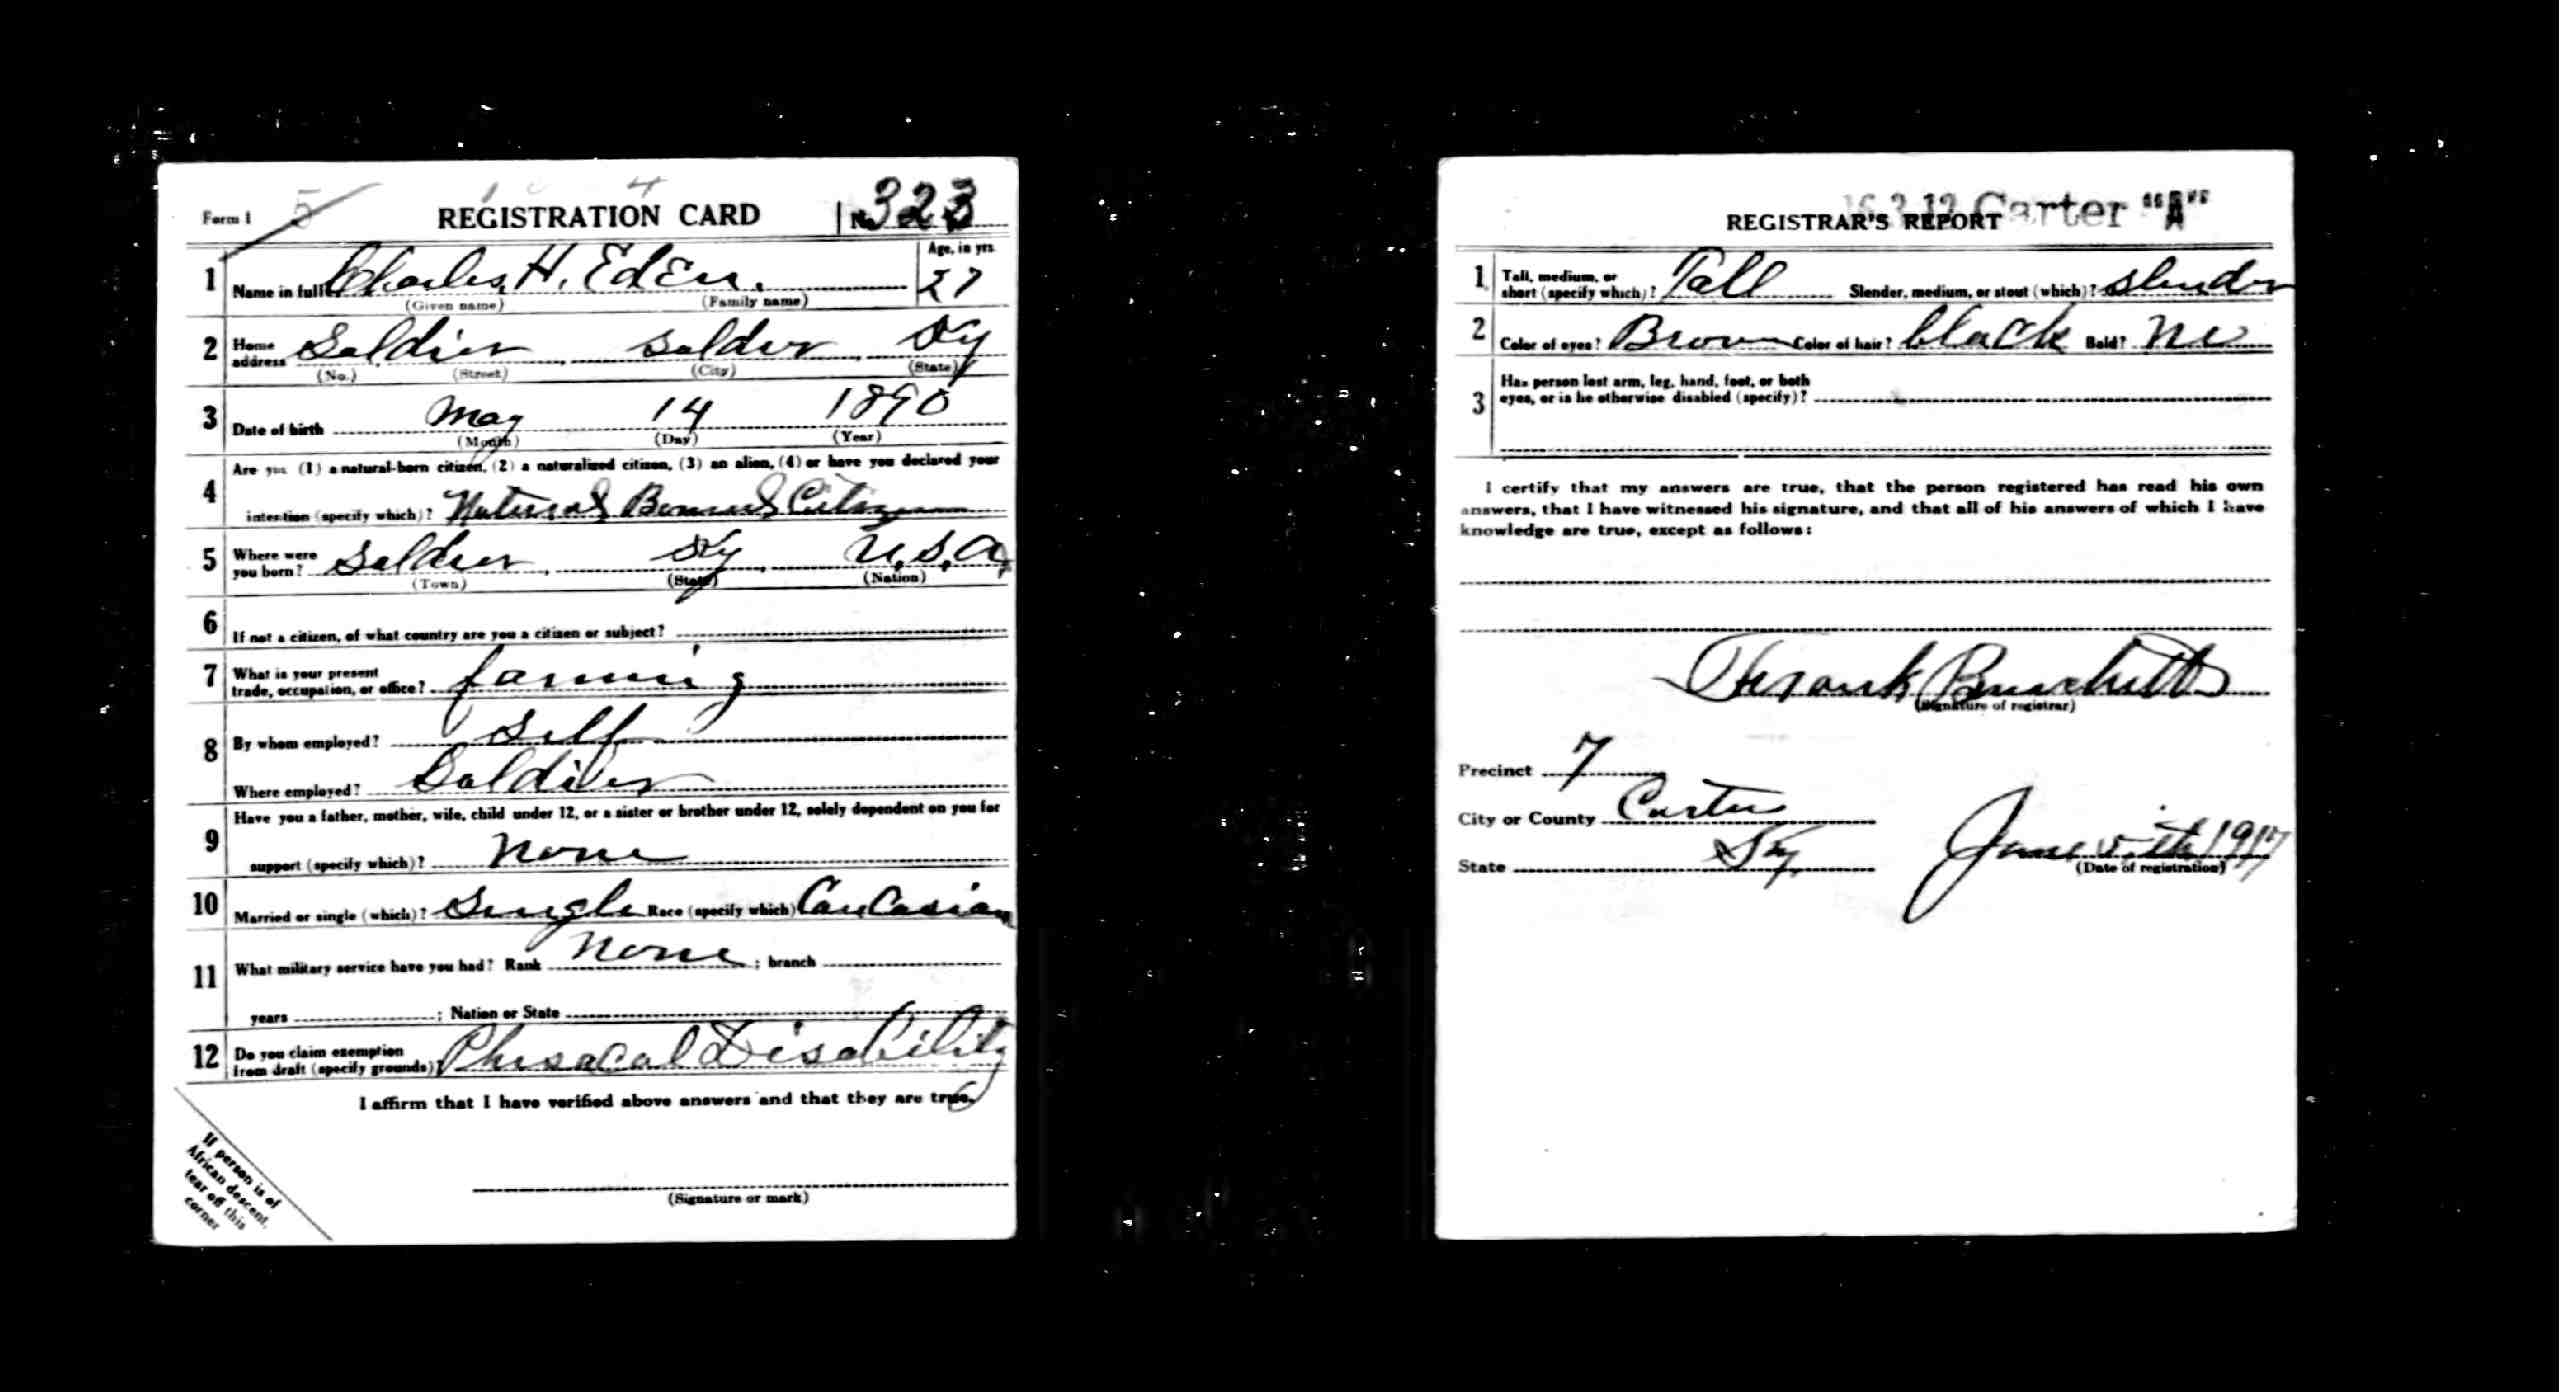 Form 1 5 REGISTRATION CARD No. 323
1 Name in full Charles H. Eden. Age, in yrs. 27
(Given name) (Family name)
2 Home address Soldier, Solder, Ky
(No.) (Street) (City) (State)
3 Date of birth May 14 1890
(Month) (Day) (Year)
4 Are you (1) a natural-born citizen, (2) a naturalized citizen, (3) an alien, (4) or have you declared your
intention (specify which)? Citizen
5 Where were you born? Soldier, Ky, U.S.A.
(Town) (State) (Nation)
6 If not a citizen, of what country are you a citizen or subject?
7 What is your present
trade, occupation, or office? farming
8 By whom employed? Self
Where employed? Soldier
9 Have you a father, mother, wife, child under 12, or a sister or brother under 12, solely dependent on you for
support (specify which)? None
10 Married or single (which)? Single Race (specify which) Caucasian
11 What military service have you had? Rank None; branch
years ; Nation or State
12 Do you claim exemption
from draft (specify grounds)? Phisacal Disability
I affirm that I have verified above answers and that they are true.
(Signature or mark)
If person is of
African descent,
tear off this
corner
Carter "A"
REGISTRAR'S REPORT
1 Tall, medium, or
short (specify which)? Tall Slender, medium, or stout (which)? Slender
2 Color of eyes? Brown Color of hair? black Bald? No
3 Has person lost arm, leg, hand, foot, or both
eyes, or is he otherwise disabled (specify)?
I certify that my answers are true, that the person registered has read his own
answers, that I have witnessed his signature, and that all of his answers of which I have
knowledge are true, except as follows:
Frank Burchett
(Signature of registrar)
Precinct 7
City or County Carter
State Ky June 5th 1917
(Date of registration)